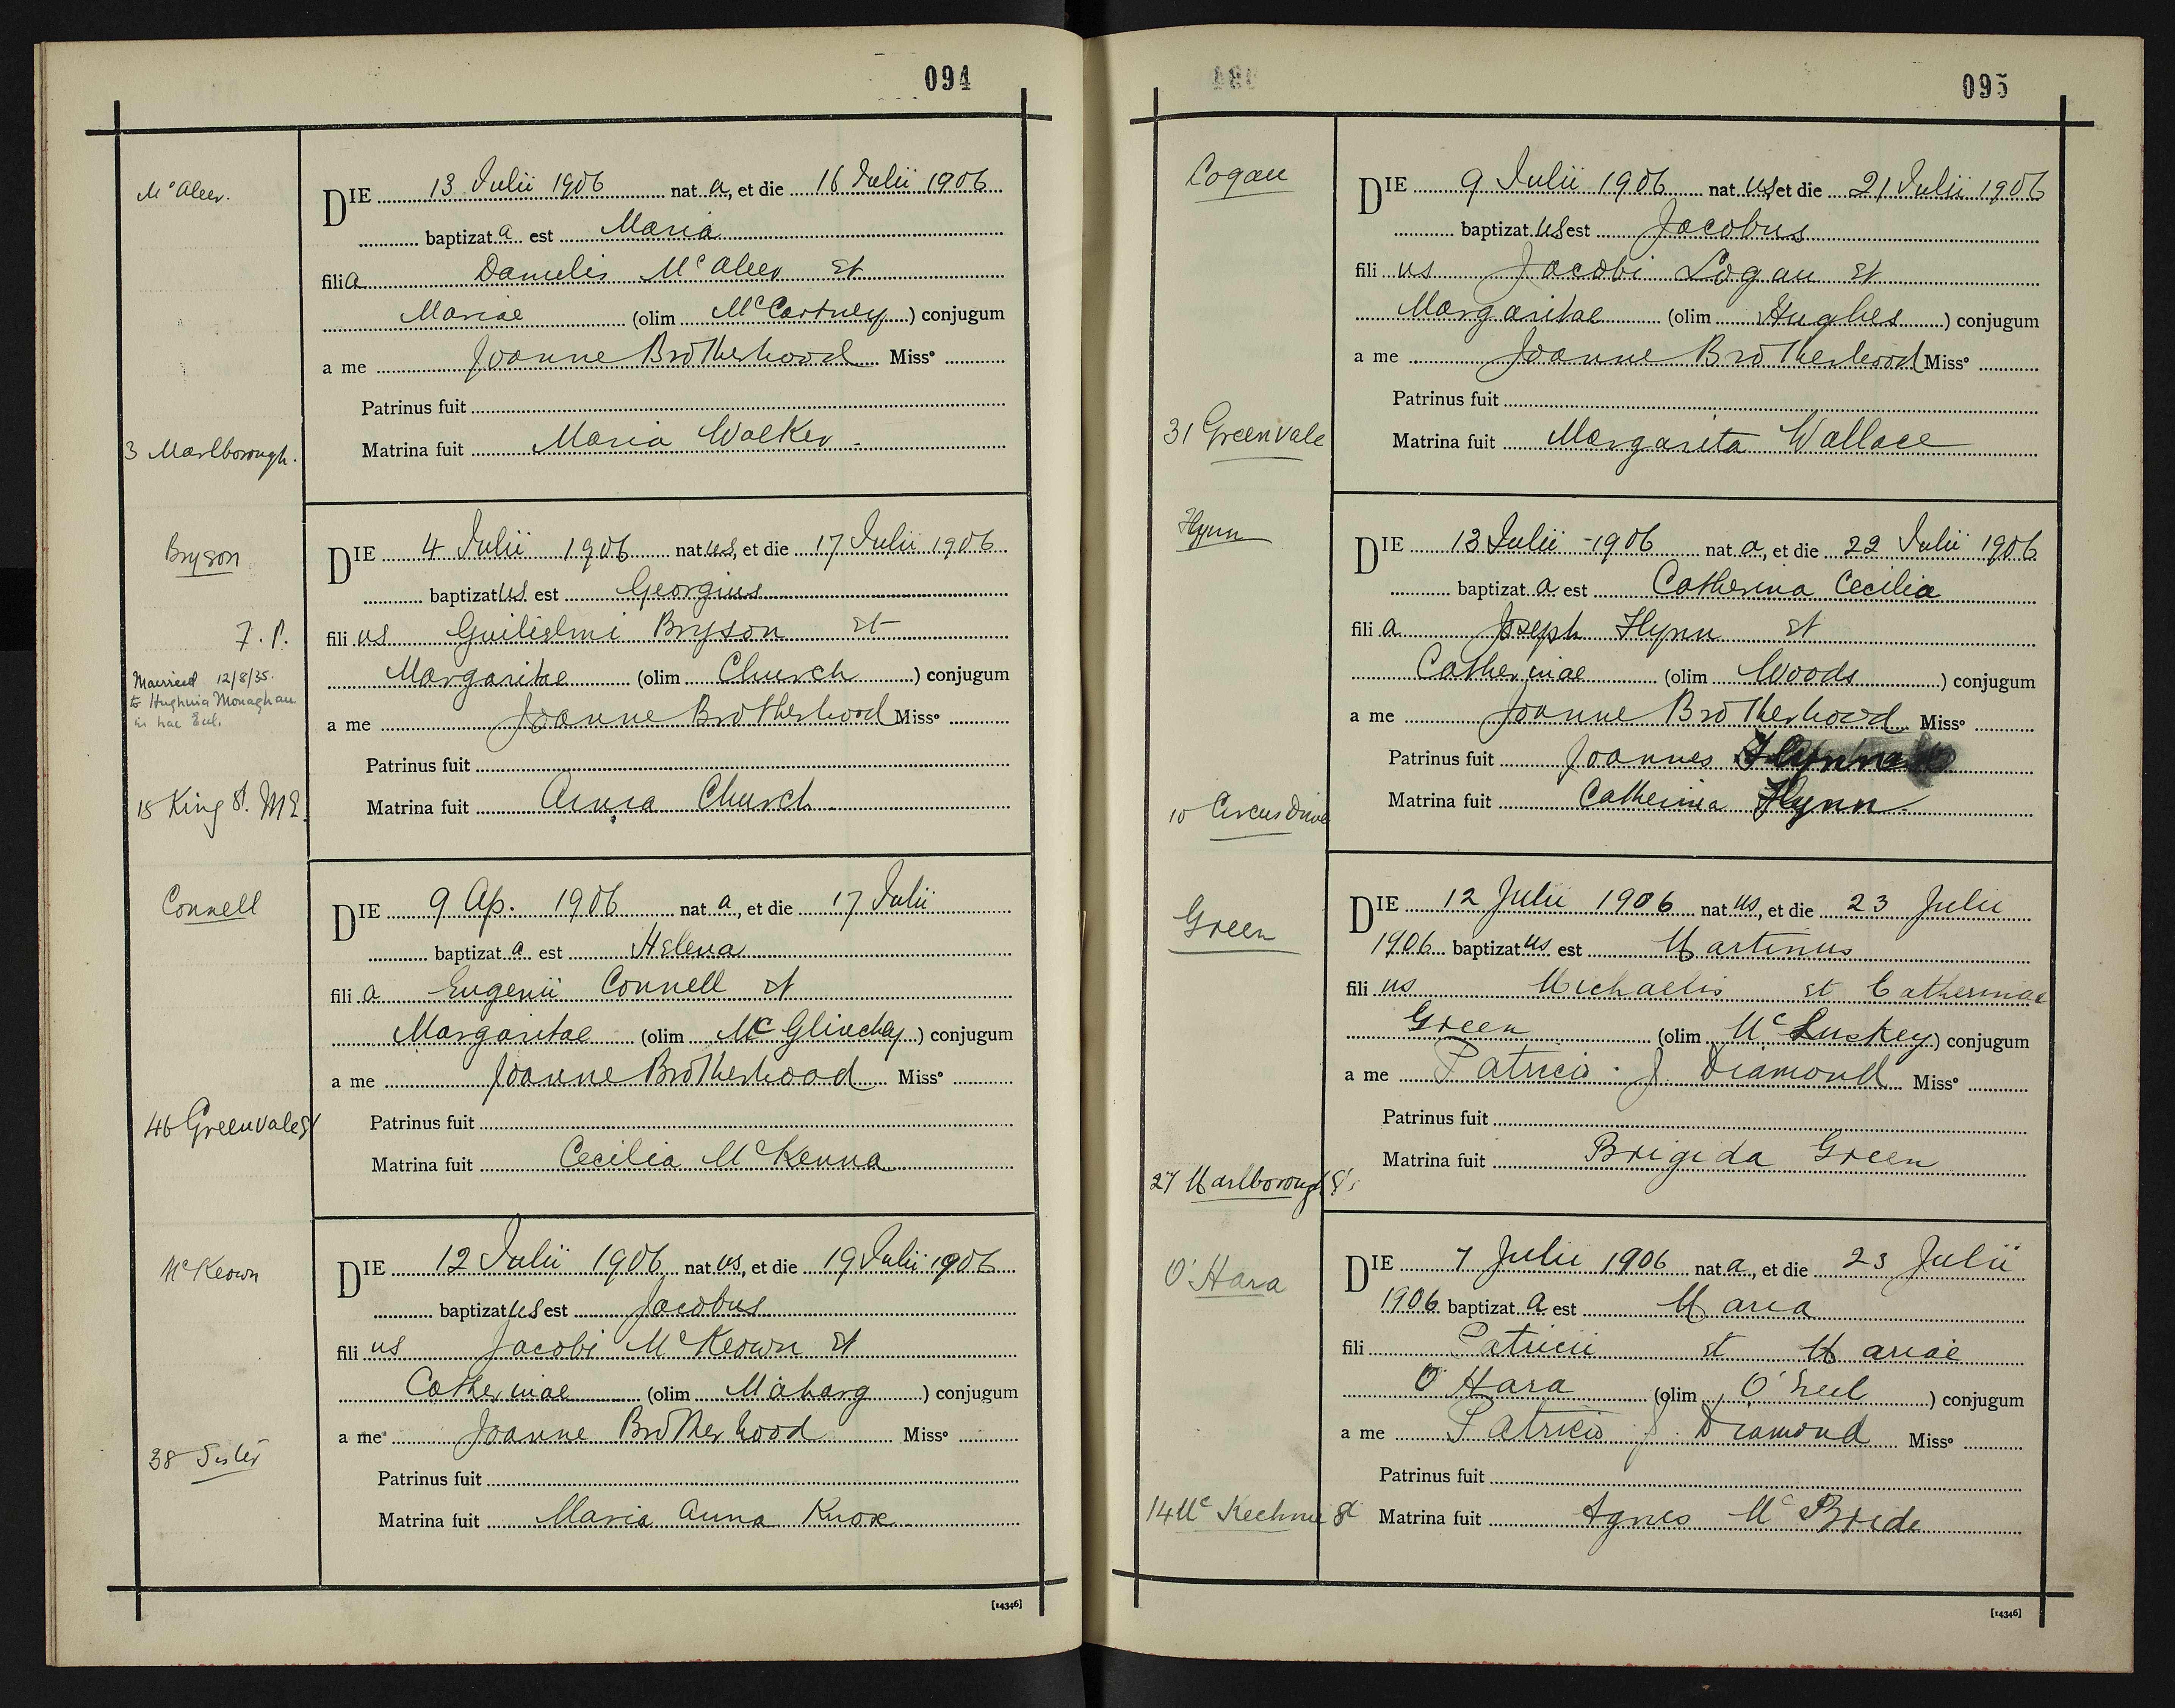 094
McAleer.
DIE 13 Julii 1906 nat a, et die 16 Julii 1906
baptizat a est Maria
fili a Danielis McAleer et
Mariae (olim McCartney) conjugum
a me Joanne Brotherhood Misso
Patrinus fuit
Matrina fuit Maria Walker
3 Marlborough.
Bryson
DIE 4 Julii 1906 nat us, et die 17 Julii 1906
baptizat us est Georgius
7. P.
fili us Guilielmi Bryson et
Married 12/8/35.
to Hughina Monaghan
in hac Eccl.
Margaritae (olim Church) conjugum
a me Joanne Brotherhood Misso
Patrinus fuit
15 King St. M E
Matrina fuit Anna Church
Connell
DIE 9 Ap. 1906 nat a, et die 17 Julii
baptizat a est Helena
fili a Eugenii Connell et
Margaritae (olim McGlinchey) conjugum
a me Joanne Brotherhood Misso
46 Greenvale St
Patrinus fuit
Matrina fuit Cecilia McKenna
McKeown
DIE 12 Julii 1906 nat us, et die 19 Julii 1906
baptizat us est Jacobus
fili us Jacobi McKeown et
Catherinae (olim Maharg) conjugum
a me Joanne Brotherhood Misso
38
Patrinus fuit
Matrina fuit Maria Anna Knox
[14346]
095
Logan
DIE 9 Julii 1906 nat us, et die 21 Julii 1906
baptizat us est Jacobus
fili us Jacobi Logan et
Margaritae (olim Hughes) conjugum
a me Joanne Brotherhood Misso
Patrinus fuit
31 Greenvale
Matrina fuit Margarita Wallace
Flynn
DIE 13 Julii 1906 nat a, et die 22 Julii 1906
baptizat a est Catherina Cecilia
fili a Joseph Flynn et
Catherinae (olim Woods) conjugum
a me Joanne Brotherhood Misso
Patrinus fuit Joannes
10 Circus Drive
Matrina fuit Catherina Flynn
Green
DIE 12 Julii 1906 nat us, et die 23 Julii
1906 baptizat us est Martinus
fili us Michaelis et Catherinae
Green (olim McLuskey) conjugum
a me Patricio J. Diamond Misso
Patrinus fuit
Matrina fuit Brigida Green
27 Marlborough St
O'Hara
DIE 7 Julii 1906 nat a, et die 23 Julii
1906 baptizat a est Maria
fili Patricii et Mariae
O'Hara (olim O'Neil) conjugum
a me Patricio J. Diamond Misso
Patrinus fuit
14 McKechnie St
Matrina fuit Agnes McBride
[14346]